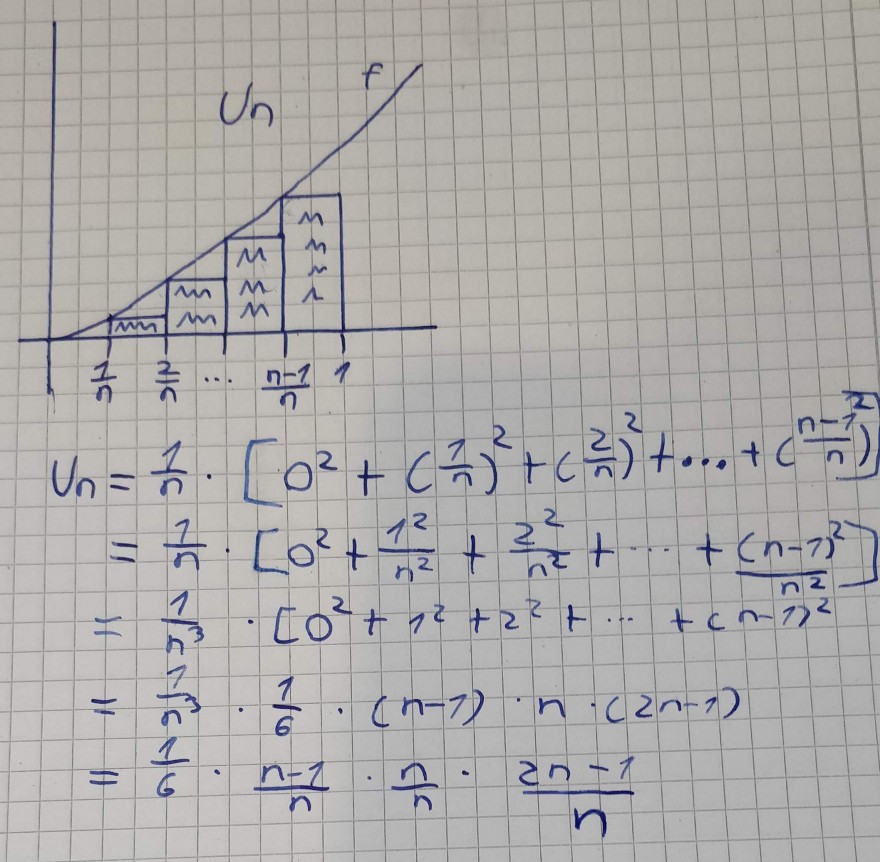 f
Un
1/n 2/n ... n-1/n 1
Un = 1/n · [0² + (1/n)² + (2/n)² + ... + (n-1/n)²]
= 1/n · [0² + 1²/n² + 2²/n² + ... + (n-1)²/n²]
= 1/n³ · [0² + 1² + 2² + ... + (n-1)²
= 1/n³ · 1/6 · (n-1) · n · (2n-1)
= 1/6 · n-1/n · n/n · 2n-1/n